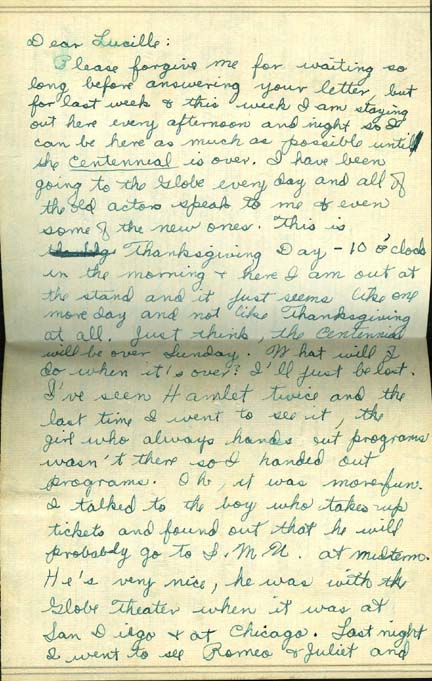 Dear Lucille:
Please forgive me for waiting so
long before answering your letter, but
for last week & this week I am staying
out here every afternoon and night so I
can be here as much as possible until
the Centennial is over. I have been
going to the Globe every day and all of
the old actors speak to me & even
some of the new ones. This is
Thanksgiving Day - 10 o'clock
in the morning & here I am out at
the stand and it just seems like one
more day and not like Thanksgiving
at all. Just think, the Centennial
will be over Sunday. What will I
do when it's over? I'll just be lost.
I've seen Hamlet twice and the
last time I went to see it, the
girl who always hands out programs
wasn't there so I handed out
programs. Oh, it was more fun.
I talked to the boy who takes up
tickets and found out that he will
probably go to S.M.U. at midterm.
He's very nice, he was with the
Globe Theater when it was at
San Diego & at Chicago. Last night
I went to see Romeo & Juliet and